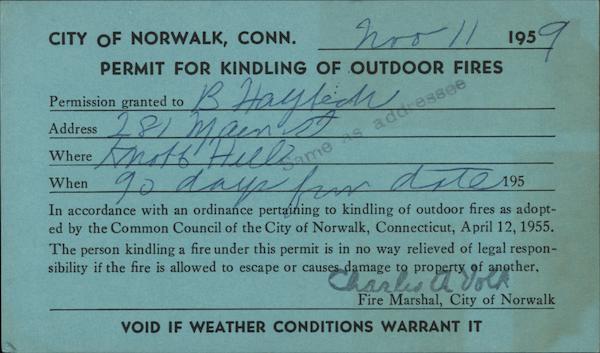 CITY OF NORWALK, CONN. Nov 11 1959
PERMIT FOR KINDLING OF OUTDOOR FIRES
Permission granted to B Hayfech
Address 281 Main st
Where Knobb Hill
Same as addressee
When 90 days from date 195
In accordance with an ordinance pertaining to kindling of outdoor fires as adopt-
ed by the Common Council of the City of Norwalk, Connecticut, April 12, 1955.
The person kindling a fire under this permit is in no way relieved of legal respon-
sibility if the fire is allowed to escape or causes damage to property of another.
Charles A Volk
Fire Marshal, City of Norwalk
VOID IF WEATHER CONDITIONS WARRANT IT